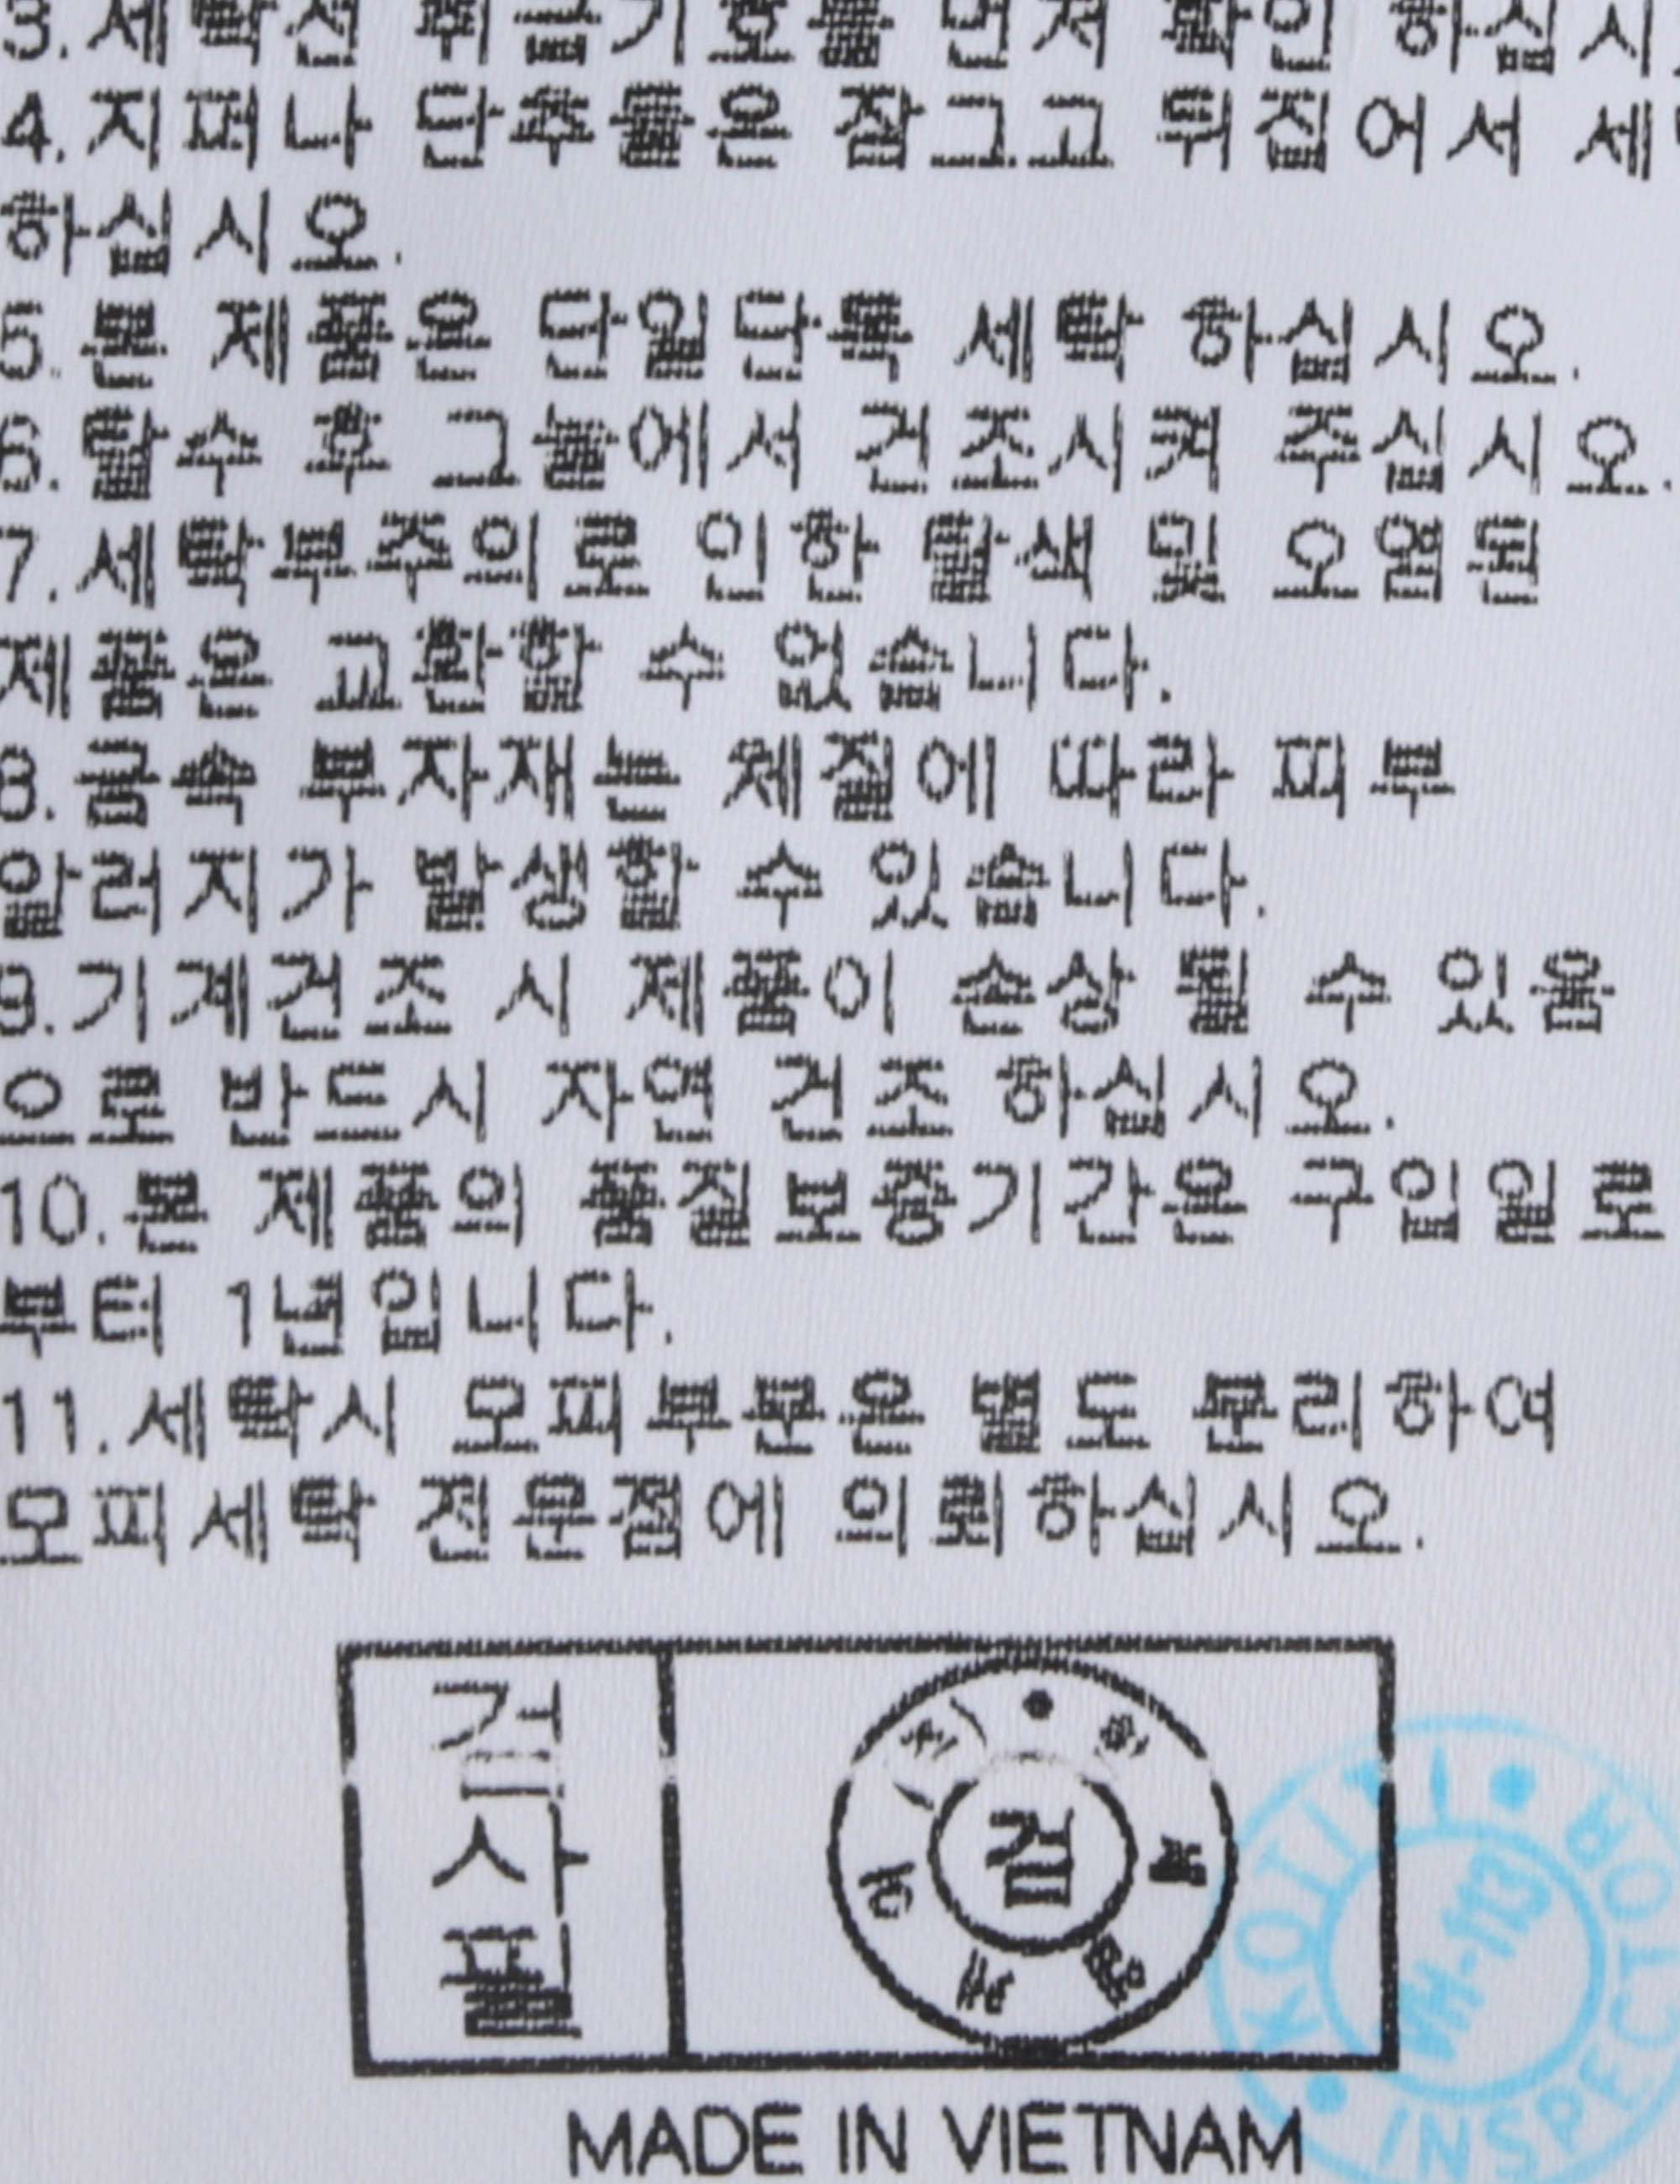 3.세탁전 취급기호를 먼저 확인 하십시
4.지퍼나 단추들은 잠그고 뒤집어서 세
하십시오.
5.본 제품은 단일단독 세탁 하십시오.
6.탈수 후 그늘에서 건조시켜 주십시오.
7.세탁부주의로 인한 탈색 및 오염된
제품은 교환할 수 없습니다.
8.금속 부자재는 체질에 따라 피부
알러지가 발생할 수 있습니다.
9.기계건조 시 제품이 손상 될 수 있음
으로 반드시 자연 건조 하십시오.
10.본 제품의 품질보증기간은 구입일로
부터 1년입니다.
11.세탁시 모피부분은 별도 분리하여
모피세탁 전문점에 의뢰하십시오.
검사필
검
KOTITI • INSPECTOR •
VH-113
MADE IN VIETNAM